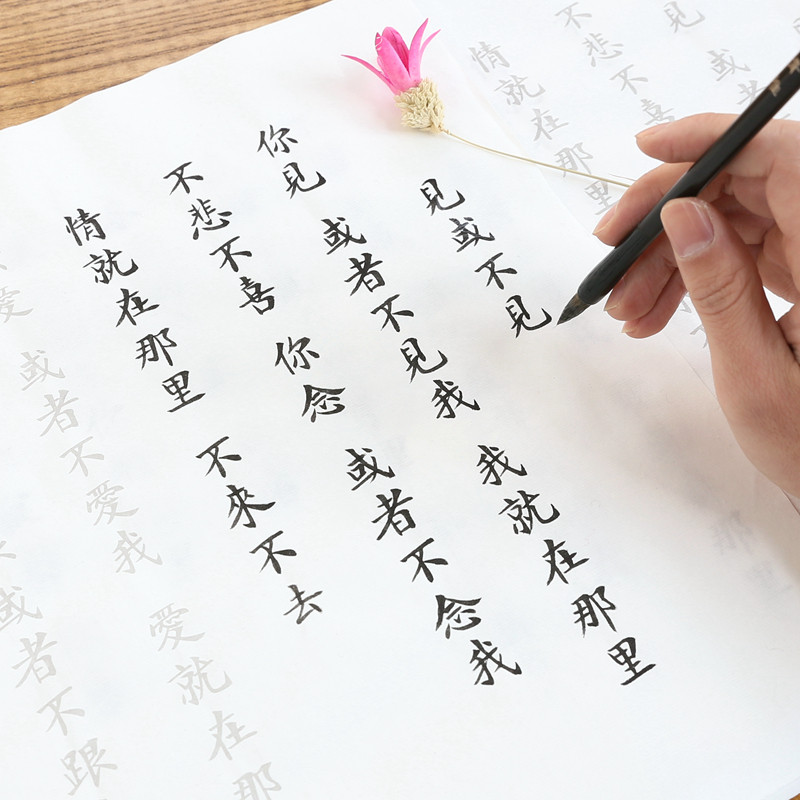 見 或
不悲不喜
情就在那里
那里
見或不見
你見 或者不見我 我就在那里
不悲不喜 你念 或者不念我
情就在那里 不來不去
愛 或者不愛我 愛就在那
或者不跟